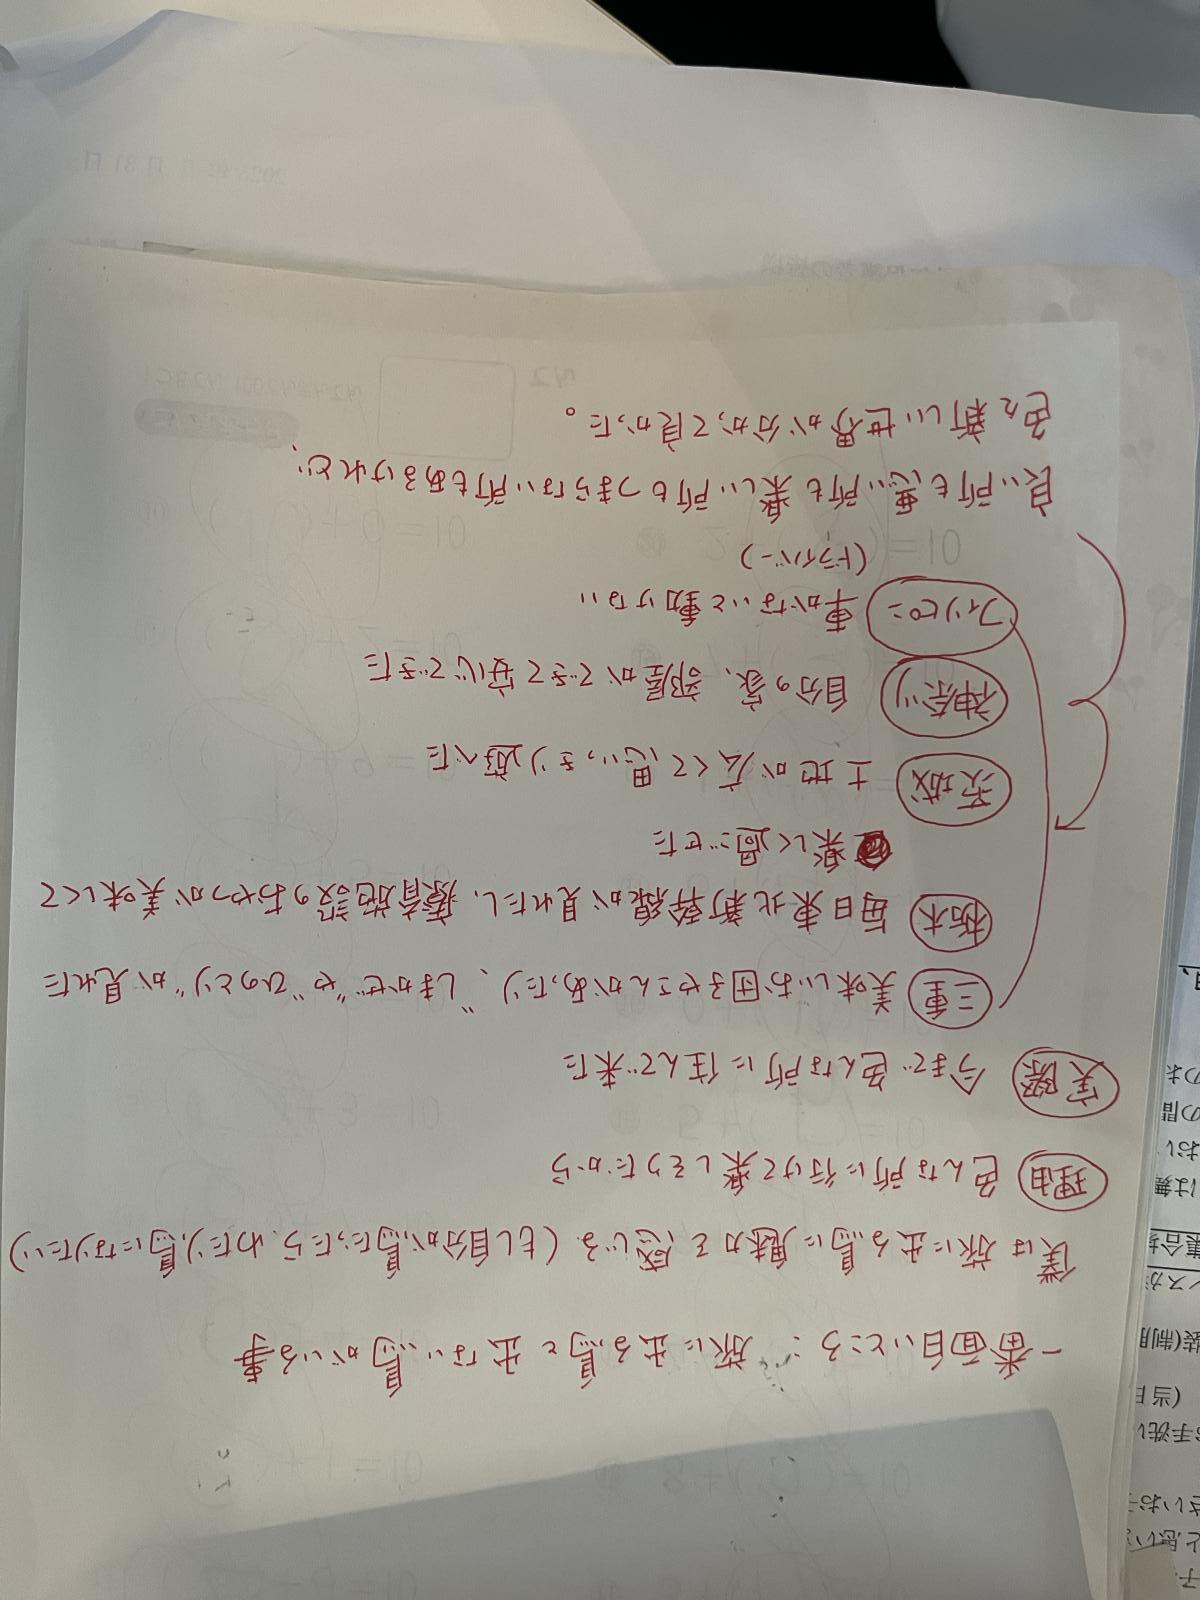 一番面白いところ：旅に出る鳥と出ない鳥がいる事
僕は旅に出る鳥に魅力を感じる（もし自分が鳥だったら、わたり鳥になりたい）
理由 色んな所に行けて楽しそうだから
実際 今まで色んな所に住んで来た
三重 美味しいお団子やさんがあったり、"しまかぜ"や"ひのとり"が見れた
栃木 毎日東北新幹線が見れたし、療育施設のおやつが美味しくて
楽しく過ごせた
茨城 土地が広くて思いっきり遊べた
神奈川 自分の家、部屋ができて安心できた
フィリピン 車がないと動けない
（ドライバー）
良い所も悪い所も楽しい所もつまらない所もあるけれど、
色々新しい世界が分かって良かった。